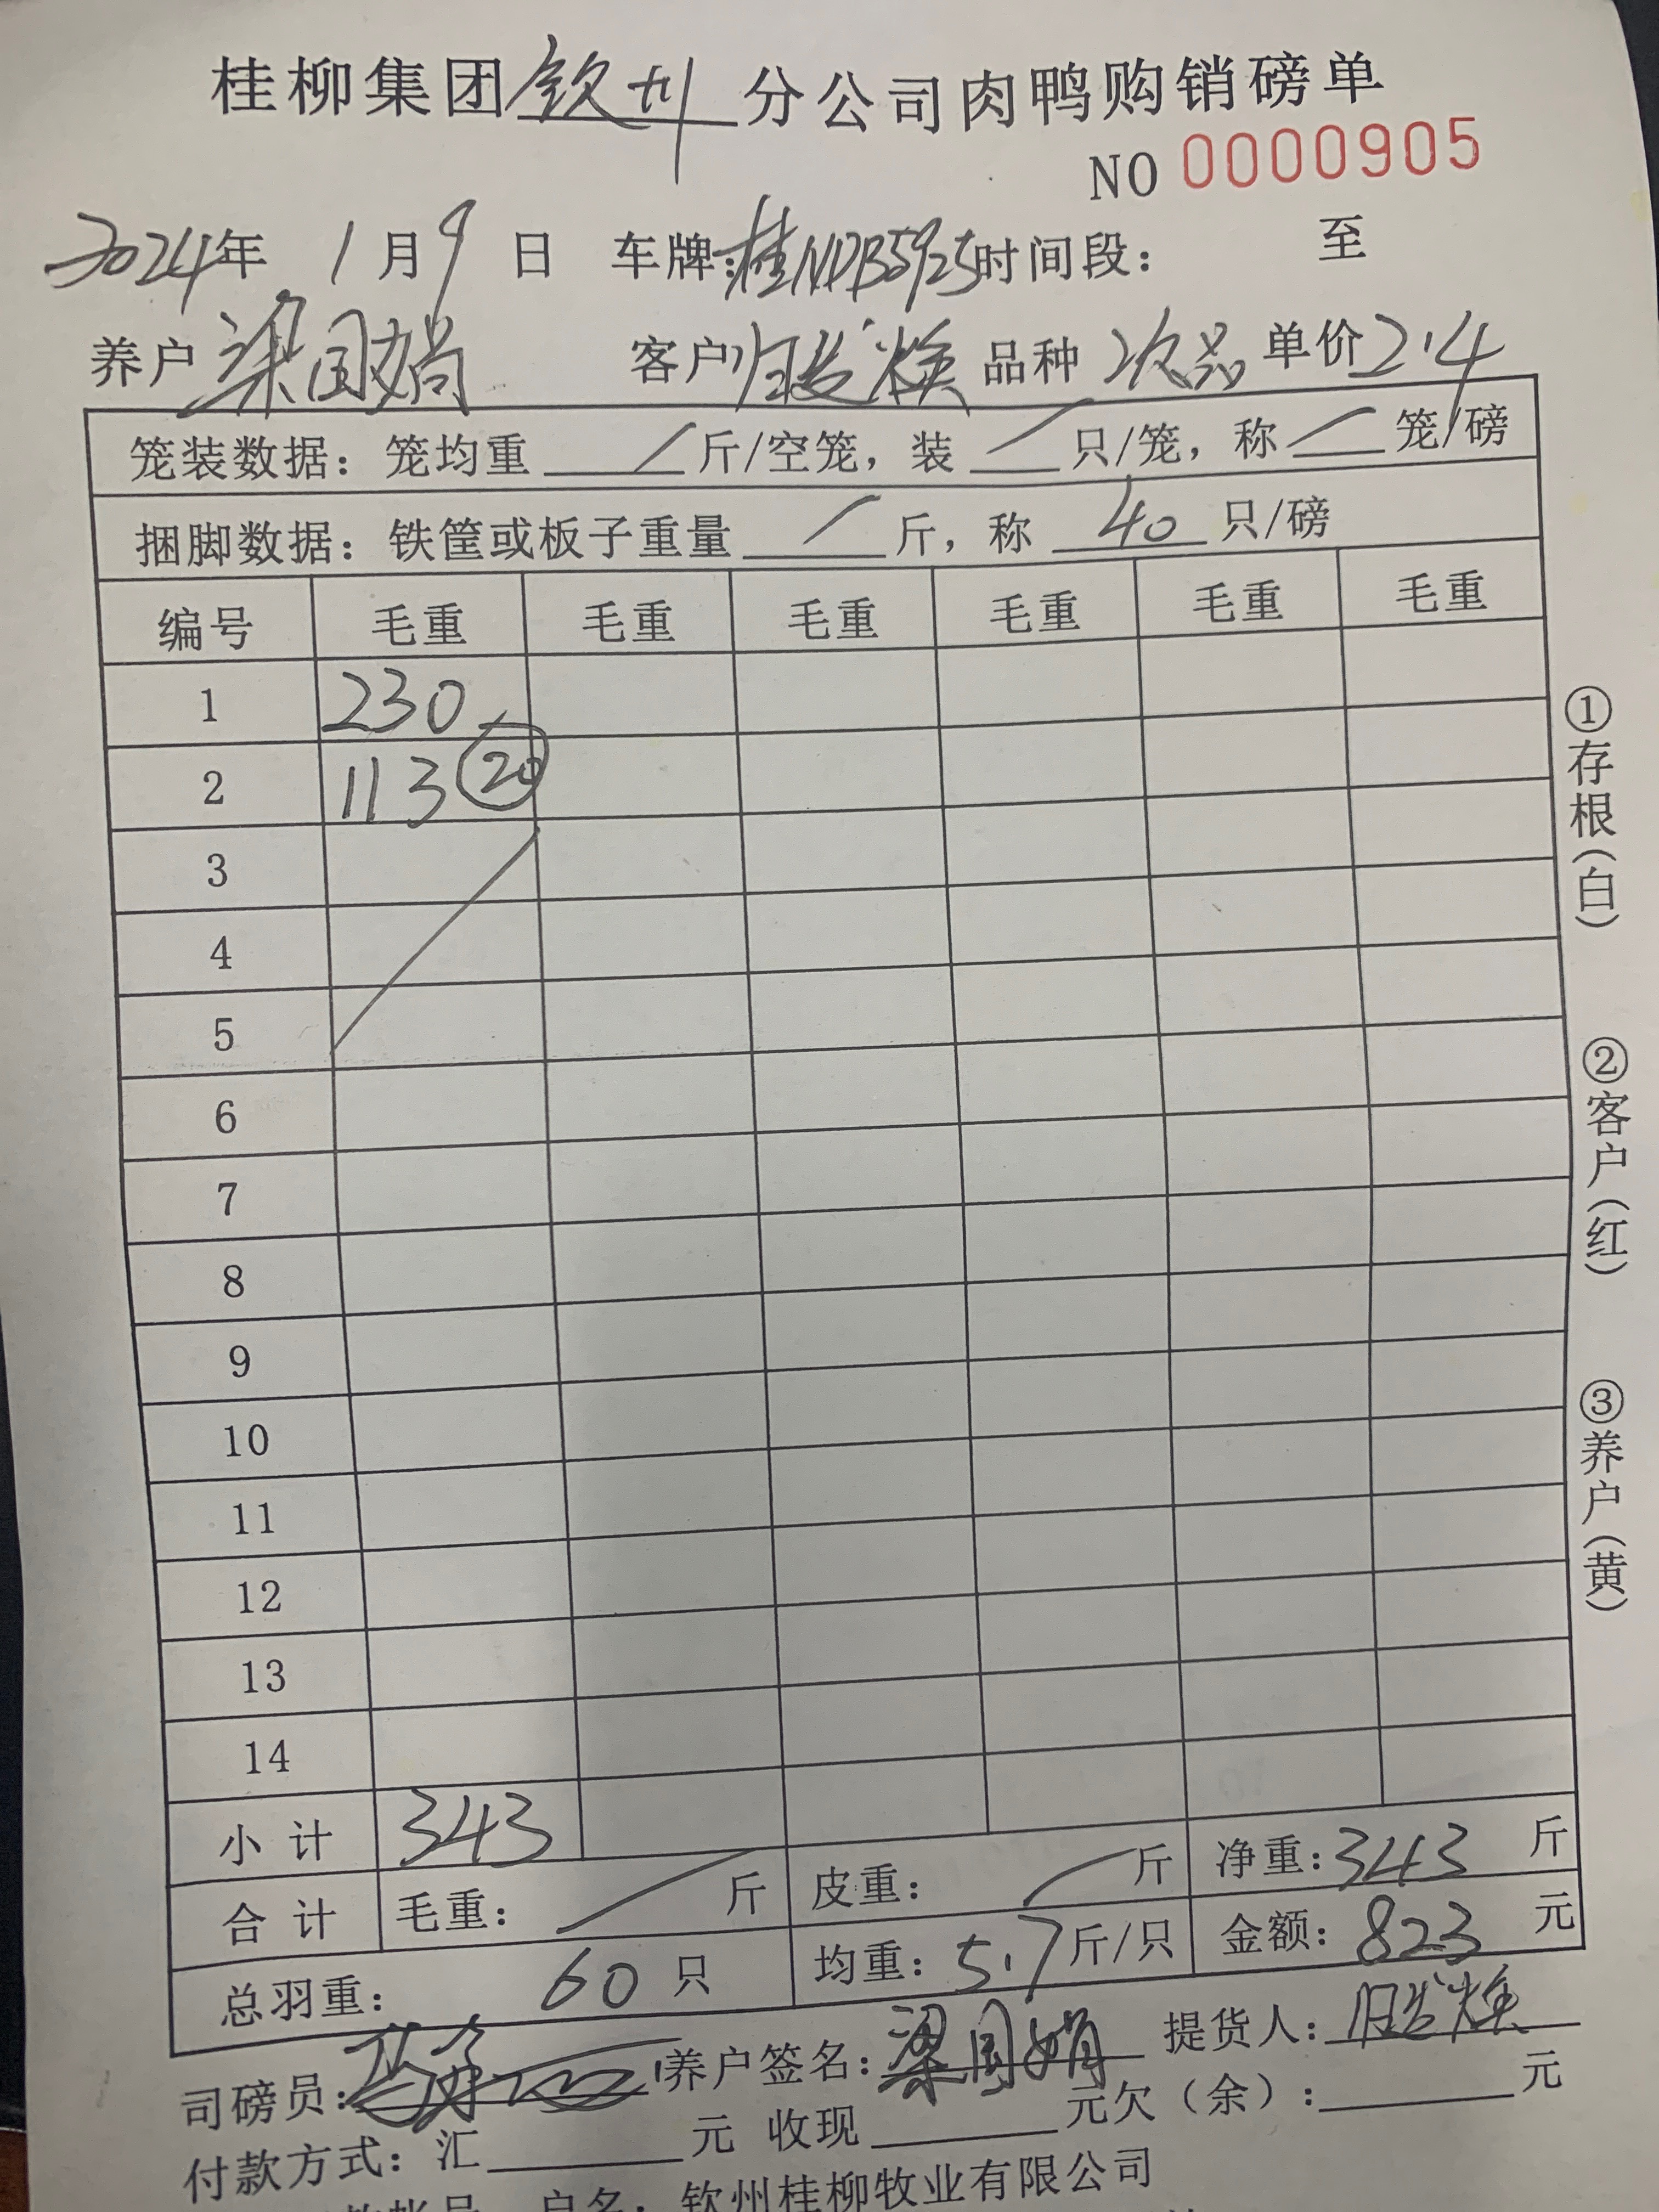 桂柳集团钦州分公司肉鸭购销磅单
NO 0000905
2024年 1月9日 车牌:桂NDB5925时间段: 至
养户 梁国娟 客户 归发焕 品种 次品 单价 2.4
笼装数据: 笼均重 / 斤/空笼, 装 / 只/笼, 称 / 笼/磅
捆脚数据: 铁筐或板子重量 / 斤, 称 40 只/磅
编号 毛重 毛重 毛重 毛重 毛重 毛重
1 230
2 113 ⑳
3
4
5
6
7
8
9
10
11
12
13
14
小计 343
合计 毛重: / 斤 皮重: / 斤 净重: 343 斤
总羽重: 60 只 均重: 5.7 斤/只 金额: 823 元
司磅员: 养户签名: 梁国娟 提货人: 归发焕
付款方式: 汇 元 收现 元欠(余): 元
户名: 钦州桂柳牧业有限公司
①存根(白)
②客户(红)
③养户(黄)